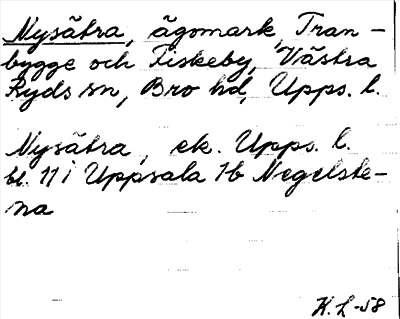 Nysätra, ägomark, Tran-
bygge och Fiskeby, Västra
Ryds sn, Bro hd, Upps. l.
Nysätra, ek. Upps. l.
bl. 11 i Uppsala 1b Negelste-
na
K. L -58